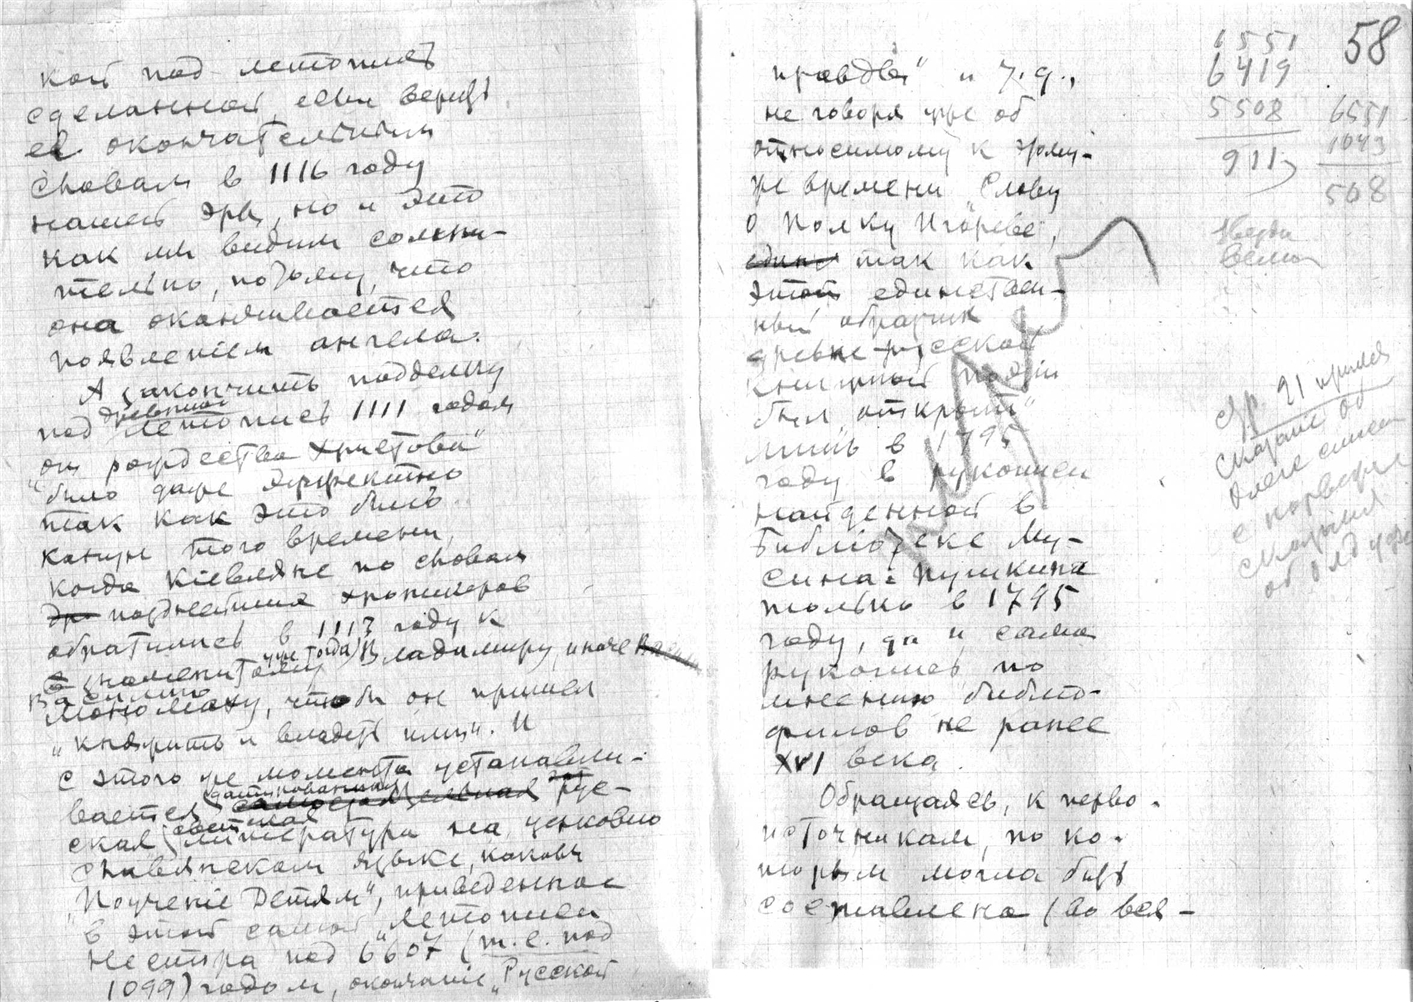 кой под летопись
сделанной, если верить
её окончательным
словам в 1116 году
нашей эры, но и это
как мы видим сомни-
тельно, потому, что
она оканчивается
появленiем ангела.
А закончить подделку
под древнюю летопись 1111 годом
„от рождества Христова"
было даже эффектно
так как это был
канун того времени,
когда Кiевляне по словам
позднейших хроникеров
обратились в 1113 году к
знаменитому (уже тогда) Владимиру, иначе
Василию
Мономаху, чтобы он пришел
„княжить и владеть ими". И
с этого же момента устанавли-
вается датированная рус-
ская светская литература на церковно
славянском языке, каковы
„Поученiе Детям", приведенное
в этой самой „летописи
Нестора под 6607 (т.е. под
1099) годом, окончанiе „Русской
58
правды" и т.д.,
не говоря уже об
относимому к этому-
же времени „Слову
о Полку Игореве,
так как
этот единствен-
ный образчик
древне-русской
книжной поэзiи
был „открыт"
лишь в 1795
году в рукописи
найденной в
Библiотеке Му-
сина-Пушкина
только в 1795
году, да и сама
рукопись по
мнению библiо-
филов не ранее
XVI века.
Обращаясь, к перво-
источникам, по ко-
торым могла быть
составлена (во вся-
6551
6419
5508
911
6551
1043
508
стр. 91 примеч
Сказанie об
Олеге
с
об